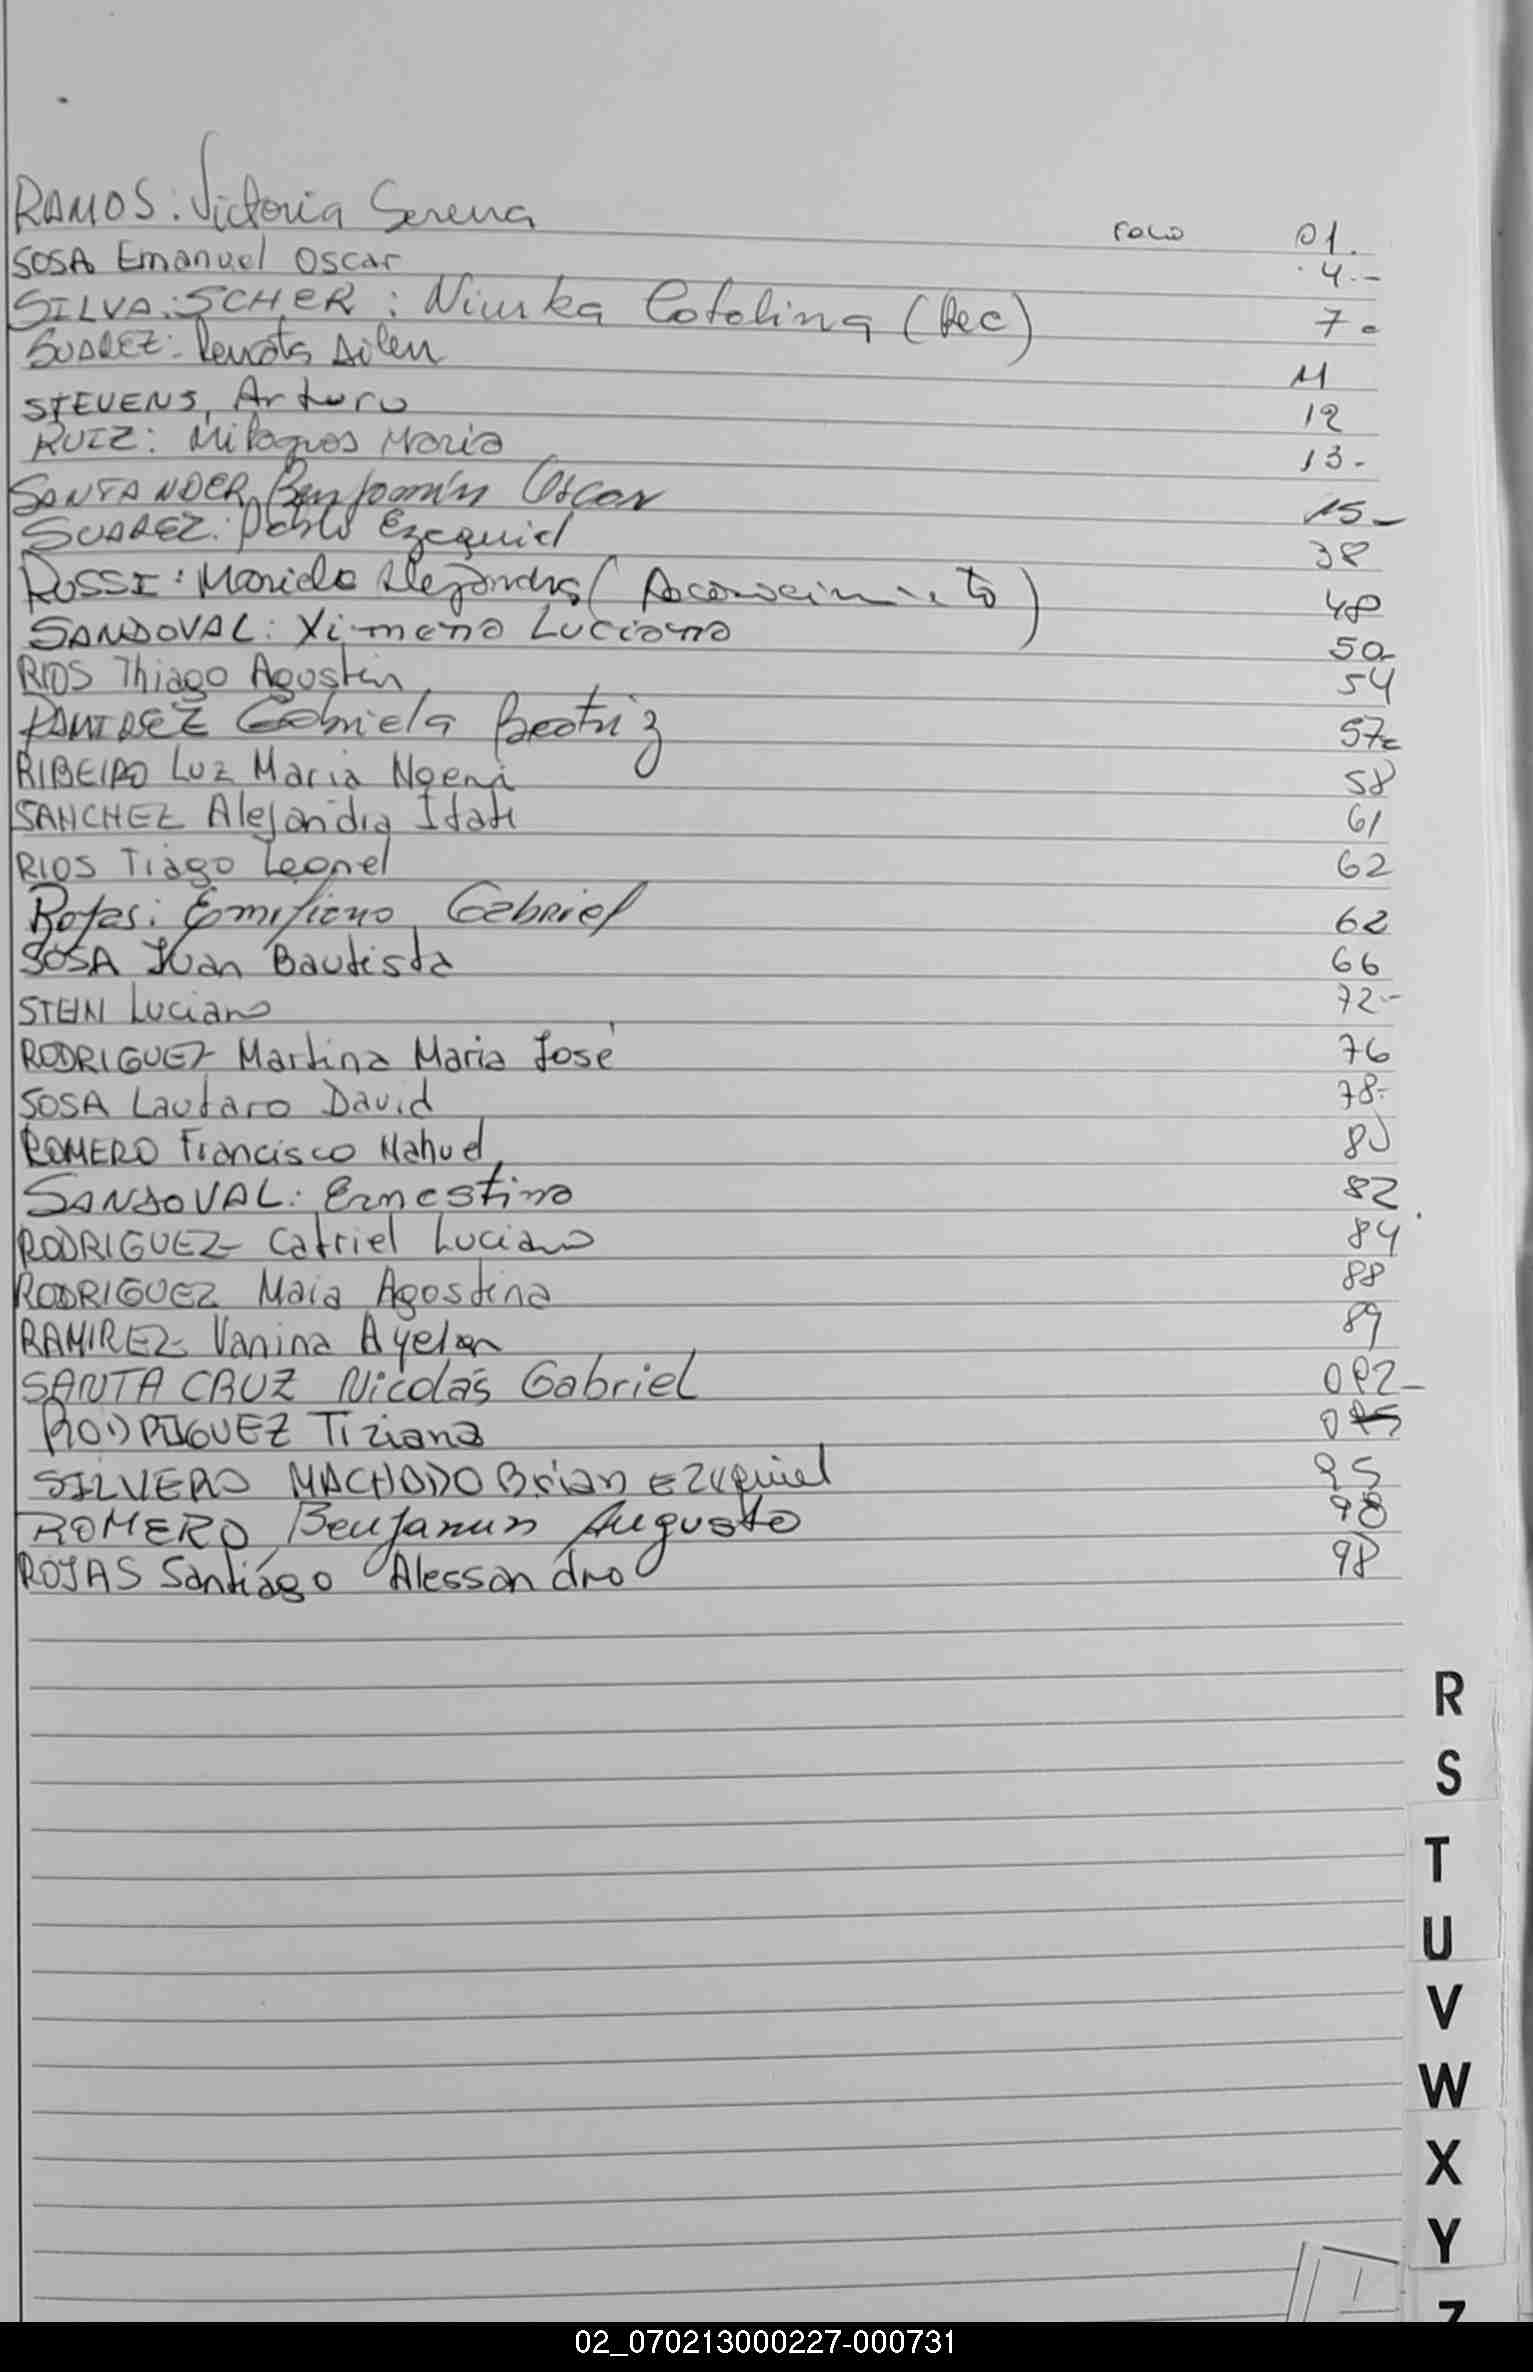 RAMOS: Victoria Serena FOLIO 01.
SOSA Emanuel Oscar 4.-
SILVA: SCHER: Niurka Catalina (Rec) 7-
SUAREZ: Renata Ailen 11
STEVENS, Arturo 12
RUIZ: Milagros Maria 13-
SANTANDER, Benjamín Oscar 15-
SUAREZ: Pablo Ezequiel 38
ROSSI: Mariela Alejandra (Reconocimiento) 48
SANDOVAL: Ximena Luciana 50-
RIOS Thiago Agustin 54
RAMIREZ Gabriela Beatriz 57-
RIBEIRO Luz Maria Noemi 58
SANCHEZ Alejandra Itati 61
RIOS Tiago Leonel 62
Rojas: Emiliano Gabriel 62
SOSA Juan Bautista 66
STEIN Luciano 72-
RODRIGUEZ Martina Maria José 76
SOSA Lautaro David 78-
ROMERO Francisco Nahuel 80
SANDOVAL: Ernestina 82
RODRIGUEZ Catriel Luciano 84
RODRIGUEZ Maia Agostina 88
RAMIREZ Vanina Ayelen 89
SANTA CRUZ Nicolás Gabriel 092-
RODRIGUEZ Tiziana
SILVERO MACHADO Brian EZEquiel 95
ROMERO Benjamin Augusto 98
ROJAS Santiago Alessandro 98
R
S
T
U
V
W
X
Y
Z
02_070213000227-000731